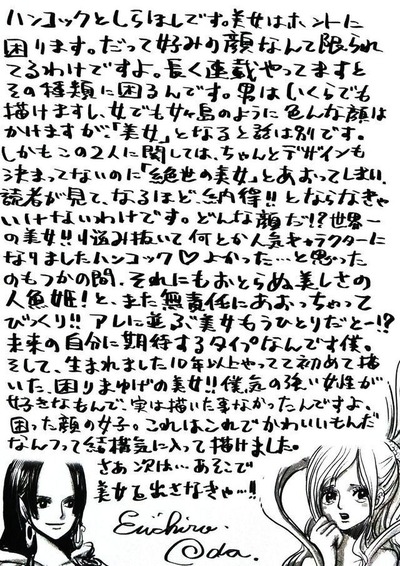 ハンコックとしらほしです。美女はホントに
困ります。だって好みの顔なんて限られ
てるわけですよ。長く連載やってますと
その種類に困るんです。男はいくらでも
描けますし、女でも女ヶ島のように色んな顔は
かけますが、「美女」となると話は別です。
しかもこの2人に関しては、ちゃんとデザインも
決まってないのに「絶世の美女」とあおってしまい、
読者が見て、なるほど、納得!!とならなきゃ
いけないわけです。どんな顔だ!?世界一
の美女!!悩み抜いて何とか人気キャラクターに
なりましたハンコック♡よかった…と思った
のもつかの間、それにもおとらぬ美しさの
人魚姫!と、また無責任にあおっちゃって
びっくり!!アレに並ぶ美女もうひとりだとー!?
未来の自分に期待するタイプなんです僕。
そして、生まれました10年以上やってて初めて描
いた、困りまゆげの美女!!僕、気の強い女性が
好きなもんで、実は描いた事なかったんですよ、
困った顔の女子。これはこれでかわいいもんだ
なんつって結構気に入って描けました。
さあ次は…あそこで
美女を出さなきゃ…!!
Eiichiro.
Oda.